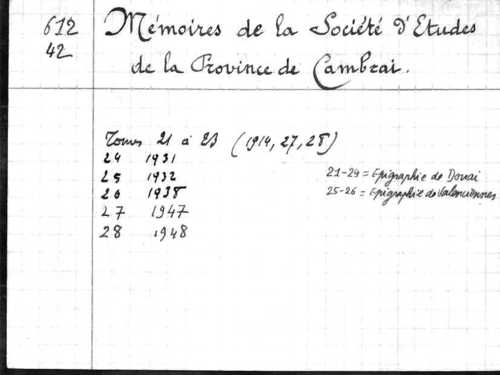 612 Mémoires de la Société d'Etudes
42 de la Province de Cambrai.
Tomes 21 à 23 (1914, 27, 28)
24 1931
25 1932 21-24 = Epigraphie de Douai
26 1938 25-26 = Epigraphie de Valenciennes
27 1947
28 1948